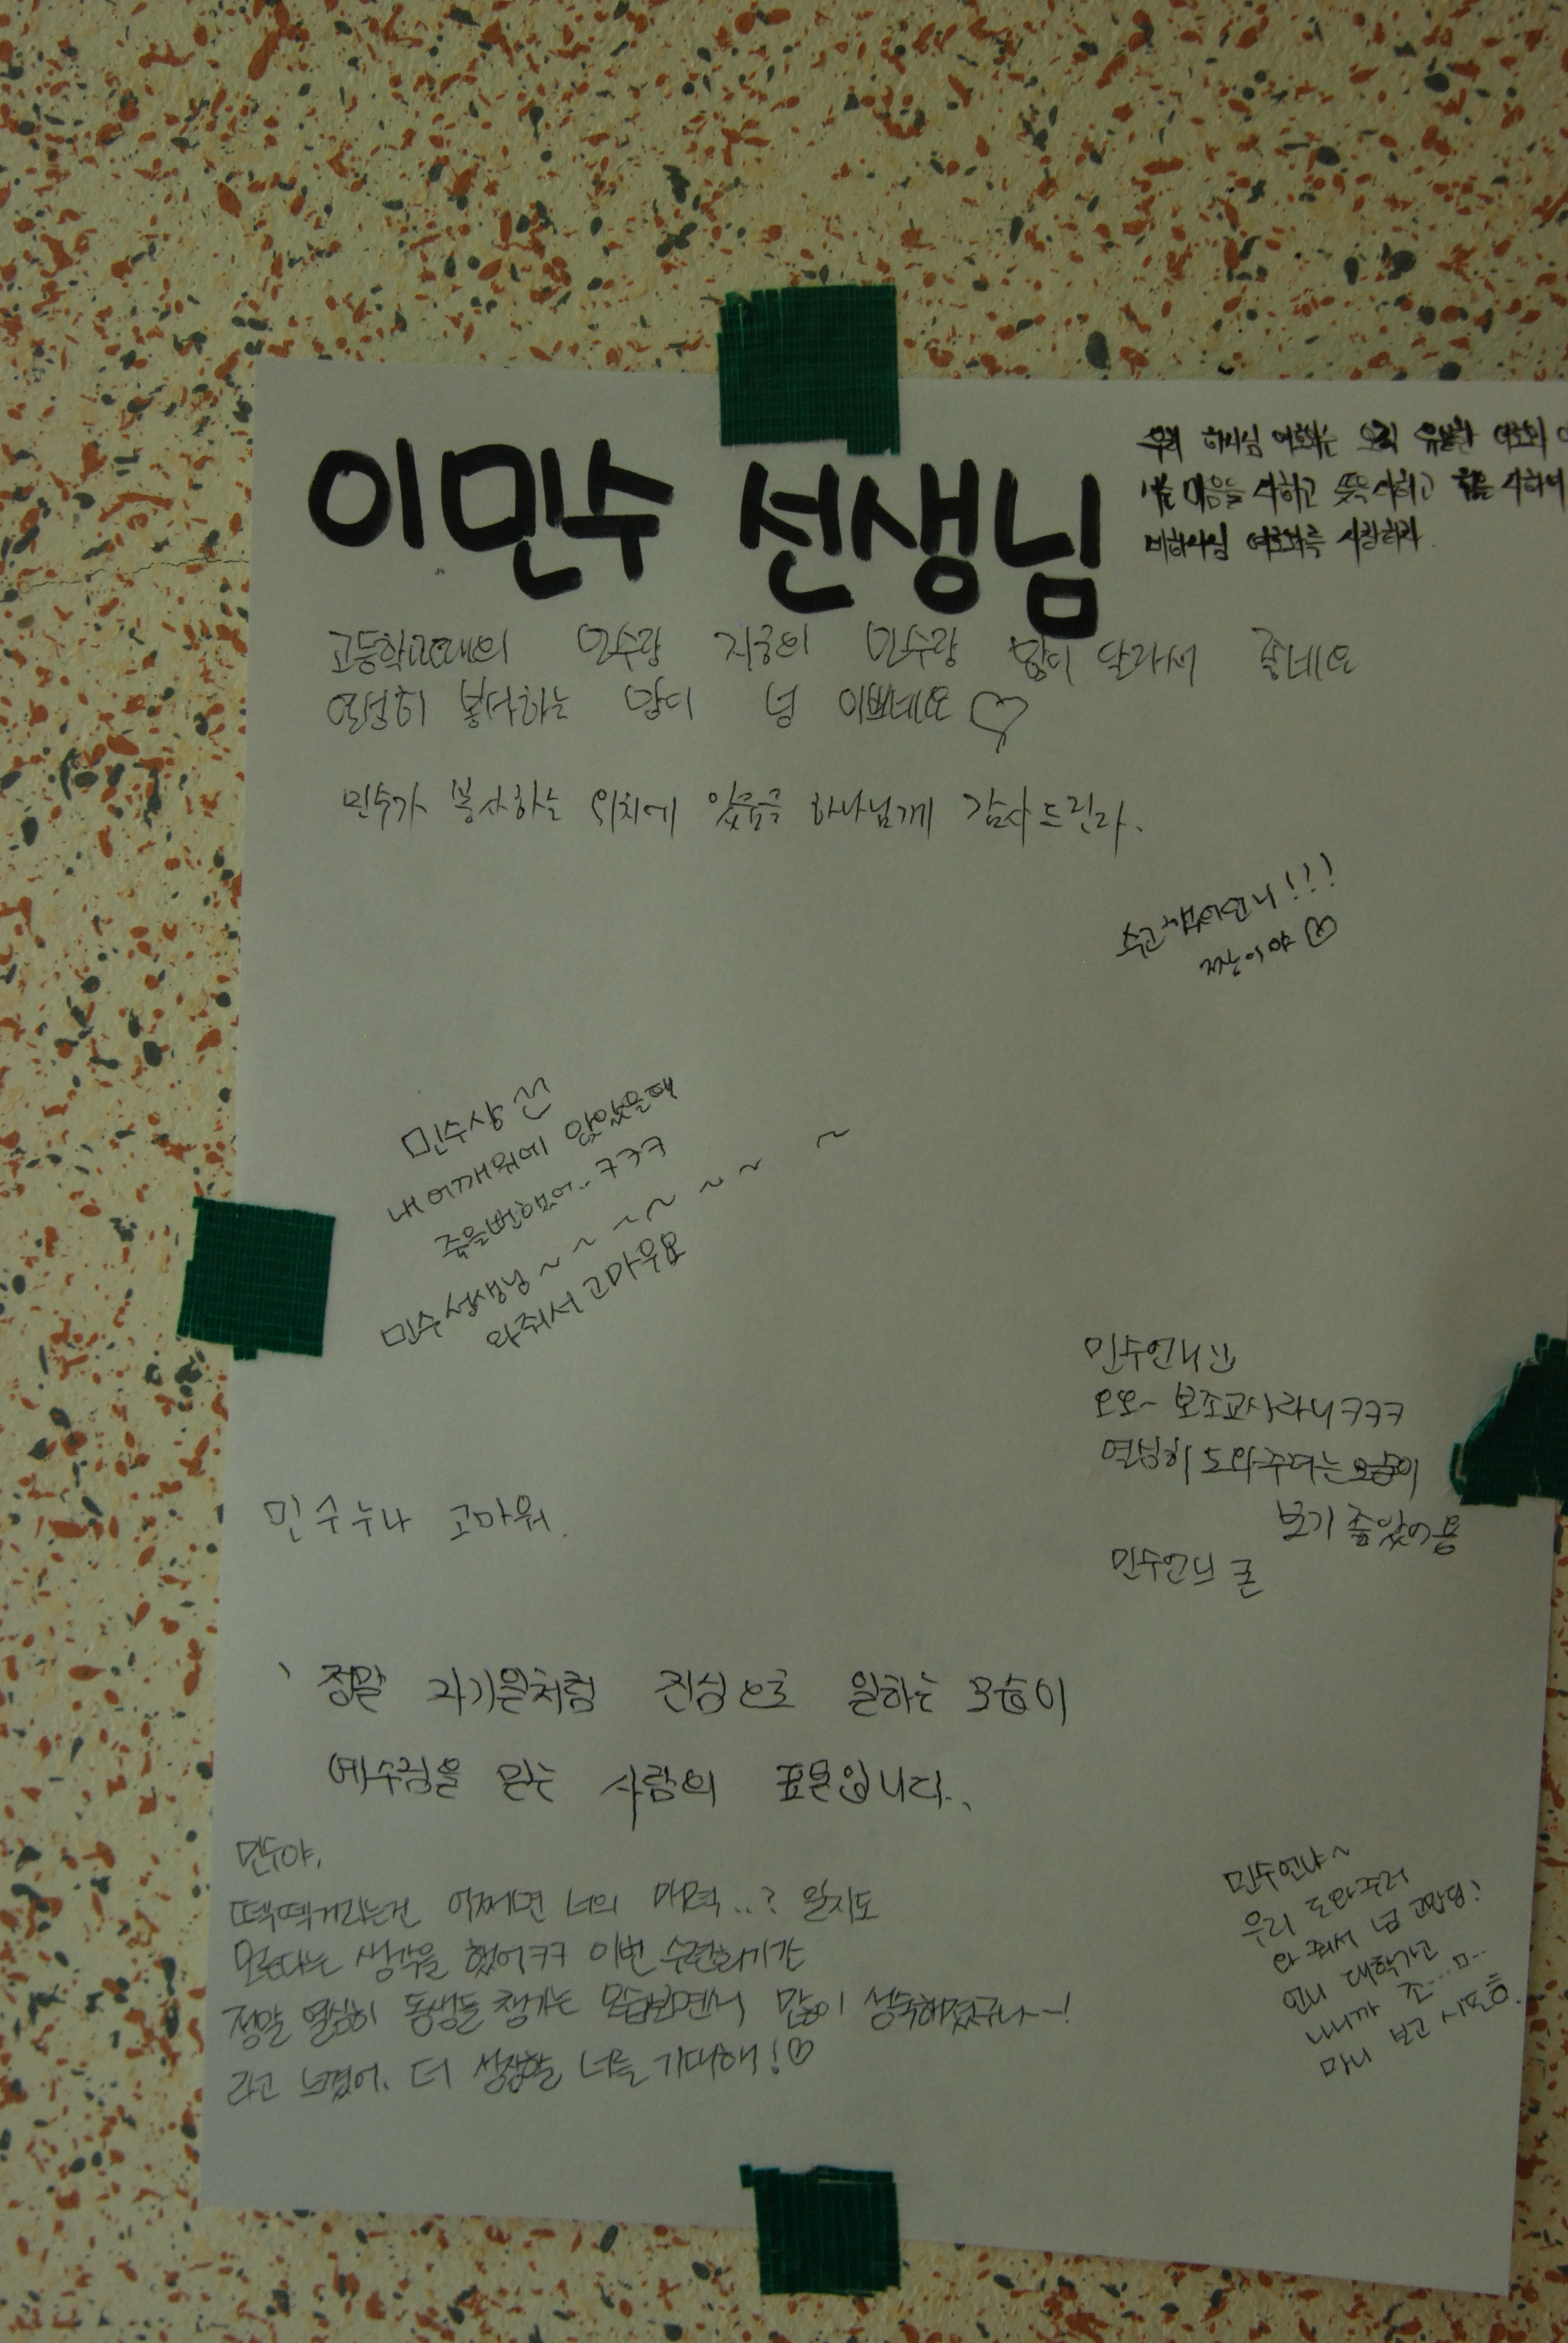 이민수 선생님
우리 하나님 여호와는 오직 유일한 여호와
마음을 다하고 뜻을 다하고 힘을 다하여
네 하나님 여호와를 사랑하라.
고등학교때의 민수랑 지금의 민수랑 많이 달라서 좋네요
열심히 봉사하는 맘이 넘 이쁘네요♡
민수가 봉사하는 위치에 있음을 하나님께 감사드린다.
수고했어언니!!!
짱이야♡
민수상
내어깨위에 앉았을때
죽을뻔했어.. ㅋㅋㅋ
민수선생님~~~~~~~
와줘서 고마워요
민수언니
오오~ 보조교사라니ㅋㅋㅋ
열심히 도와주려는모습이
보기 좋았어용
민수언니 굳
민수누나 고마워.
정말 자기일처럼 진심으로 일하는 모습이
예수님을 믿는 사람의 표본입니다..
민수야,
떽떽거리는건 어쩌면 너의 매력..? 일지도
모른다는 생각을 했어ㅋㅋ 이번 수련회기간
정말 열심히 동생들 챙기는 모습보면서 많이 성숙해졌구나~!
라고 느꼈어. 더 성장할 너를 기대해!♡
민수언냐~
우리 도와주러
와 줘서 넘 고맙당!
언니 대학가고
나니까 조...ㅁ...
마니 보고 시포흥.